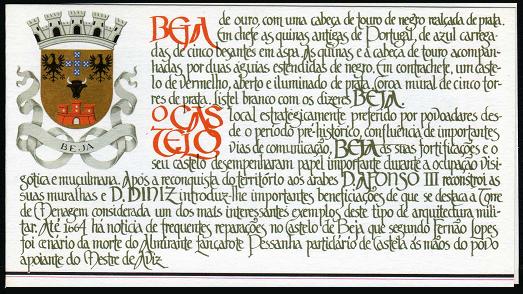 BEJA
BEJA de ouro, com uma cabeça de touro de negro realçada de prata.
Em chefe as quinas antigas de Portugal, de azul carrega-
das de cinco besantes em aspa. As quinas e a cabeça de touro acompan-
hadas por duas águias estendidas de negro. Em contrachefe, um caste-
lo de vermelho, aberto e iluminado de prata. Coroa mural de cinco tor-
res de prata. Listel branco com os dizeres BEJA.
O CASTELO local estrategicamente preferido por povoadores des-
de o período pré-histórico, confluência de importantes
vias de comunicação, BEJA as suas fortificações e o
seu castelo desempenharam papel importante durante a ocupação visi-
gótica e muçulmana. Após a reconquista do território aos árabes D. AFONSO III reconstrói as
suas muralhas e D. DINIZ introduz-lhe importantes beneficiações de que se destaca a Torre
de Menagem considerada um dos mais interessantes exemplos deste tipo de arquitectura mili-
tar. Até 1664 há notícia de frequentes reparações no Castelo de Beja que segundo Fernão Lopes
foi cenário da morte do Almirante Lançarote Pessanha partidário de Castela às mãos do povo
apoiante do Mestre de Aviz